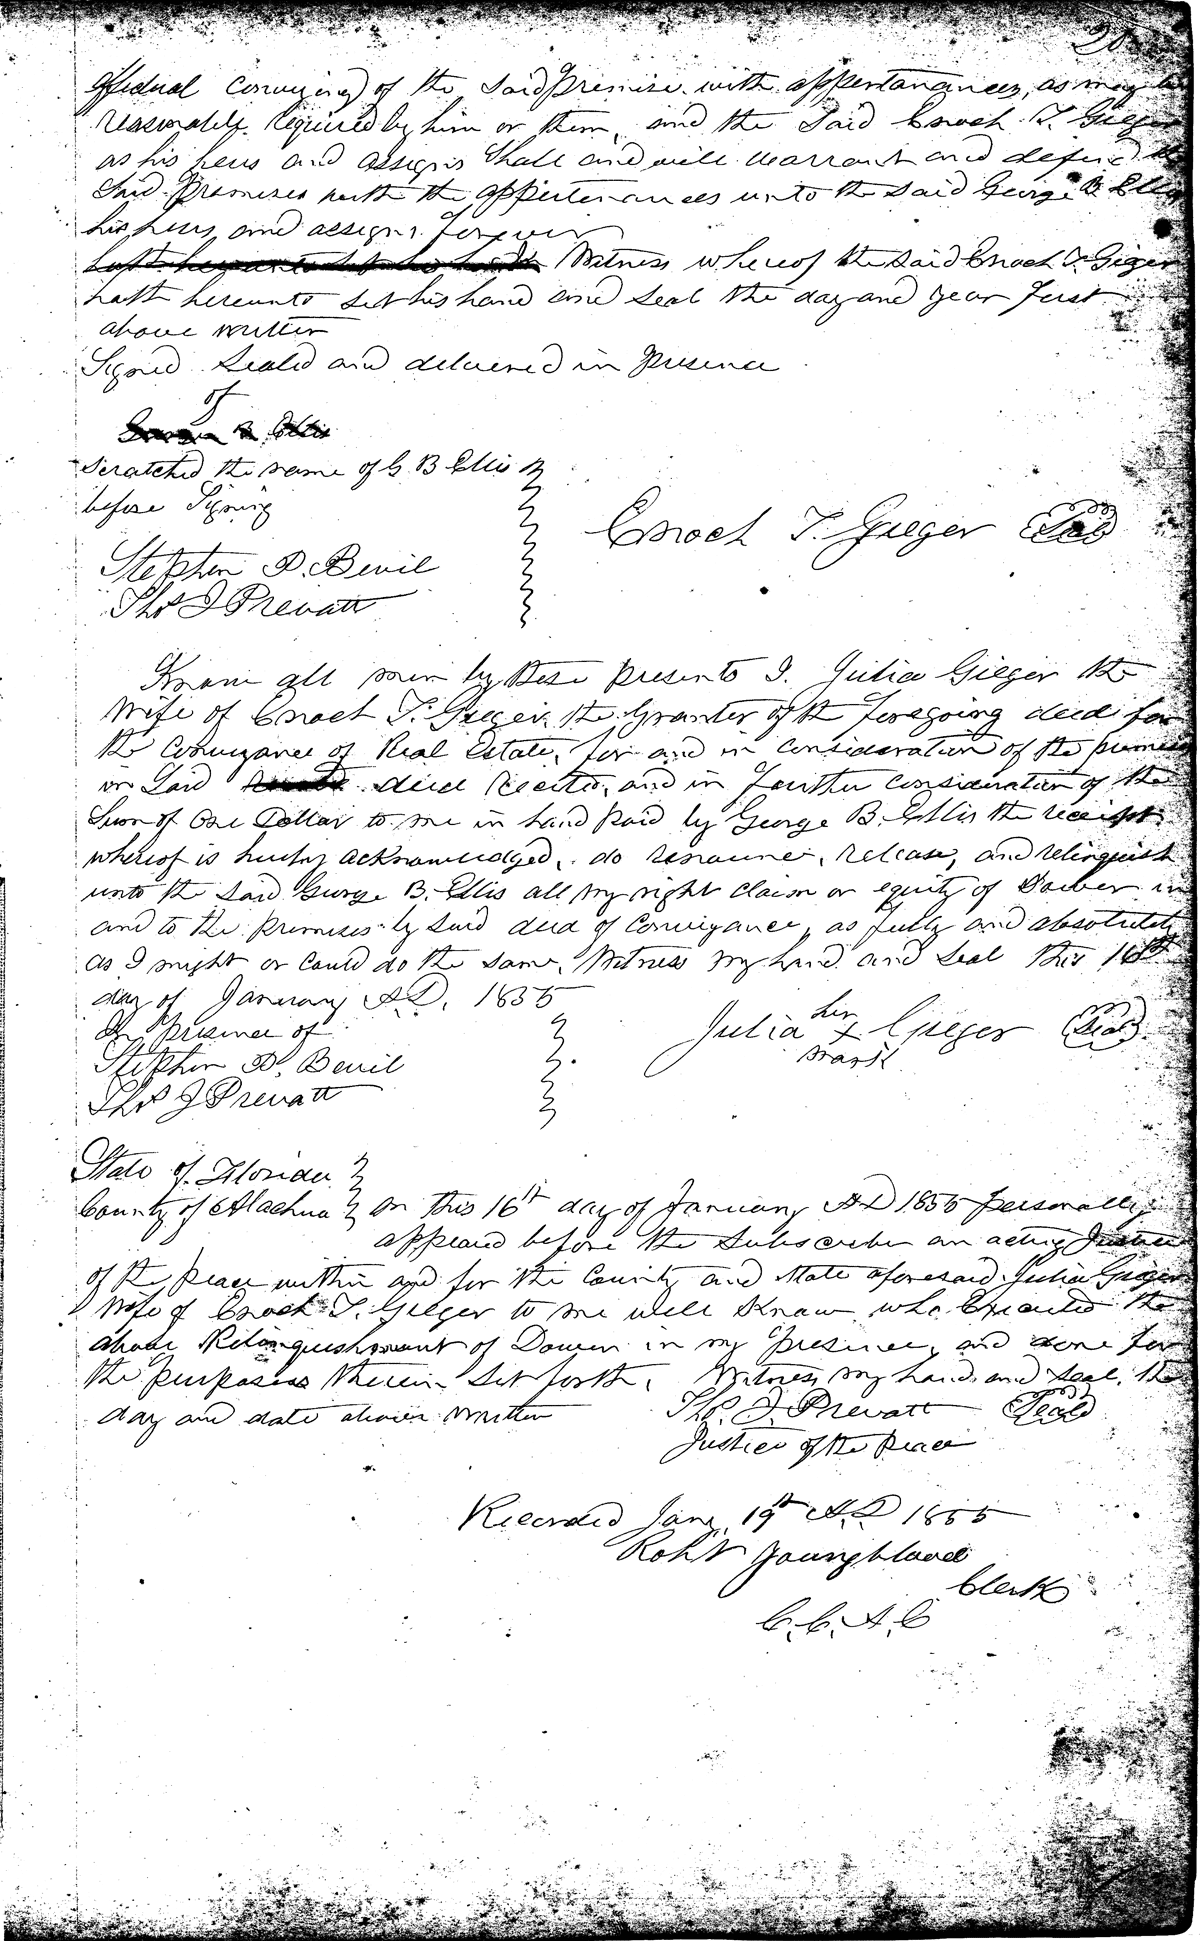 effectual conveying of the Said Premise with appertanances, as may be
reasonably required by him or them, and the Said Enoch T. Gieger
as his heirs and assigns Shall and will warrant and defend the
Said Premises with the appertenances unto the said George B Ellis
his heirs and assigns forever
Witness whereof the said Enoch T. Gieger
hath hereunto set his hand and Seal the day and year first
above written
Signed Sealed and delivered in Presence
of
George B Ellis
Scratched the name of G B Ellis
before Signing
Enoch T. Gieger Seal
Stephen D. Bevil
Thos J Prevatt
Know all men by these presents I. Julia Gieger the
Wife of Enoch T. Gieger the Granter of the foregoing deed for
the Conveyance of Real Estate, for and in consideration of the premises
in Said deed recited, and in further consideration of the
Sum of One Dollar to me in hand Paid by George B. Ellis the receipt
whereof is hereby acknowledged, do renounce, release, and relinquish
unto the Said George B. Ellis all my right claim or equity of Dower in
and to the Premises by Said deed of Conveyance, as fully and absolutely
as I might or could do the same, Witness my hand and Seal this 16th
day of January A.D. 1855
In Presence of
Julia her x mark Gieger Seal
Stephen D. Bevil
Thos J Prevatt
State of Florida
County of Alachua On this 16th day of January AD 1855 personally
appeared before the Subscriber an acting Justice
of the Peace within and for the County and State aforesaid Julia Gieger
Wife of Enoch T. Gieger to me well Known who Executed the
above Relinquishment of Dower in my Presence, and done for
the purposes therein Set forth. Witness my hand and Seal, the
day and date above written Thos. J. Prevatt Seal
Justice of the Peace
Recorded Jany 19th A.D 1855
Robt Youngblood
Clerk
C. C. A. C